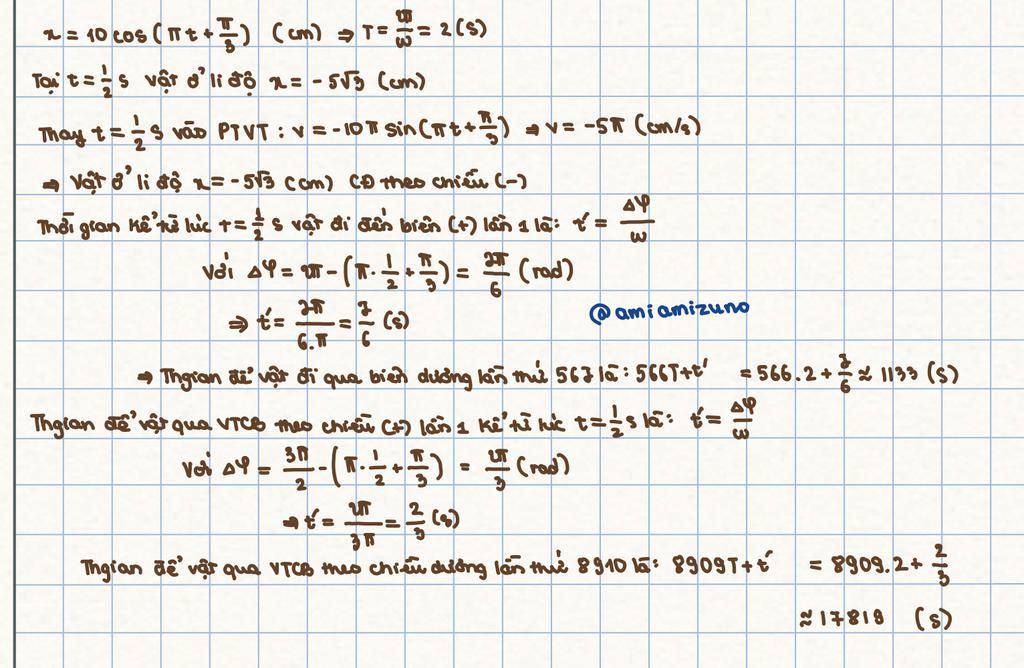 x = 10 cos (πt + π/3) (cm) ⇒ T = 2π/ω = 2 (s)
Tại t = 1/2 s vật ở li độ x = -5√3 (cm)
Thay t = 1/2 s vào PTVT : v = -10π sin(πt + π/3) ⇒ v = -5π (cm/s)
⇒ Vật ở li độ x = -5√3 (cm) CĐ theo chiều (-)
Thời gian kể từ lúc t = 1/2 s vật đi đến biên (+) lần 1 là: t' = Δφ/ω
Với Δφ = 2π - (π . 1/2 + π/3) = 7π/6 (rad)
⇒ t' = 7π/6.π = 7/6 (s)
@amiamizuno
⇒ Thgian để vật đi qua biên dương lần thứ 567 là : 566T + t' = 566.2 + 7/6 ≈ 1133 (s)
Thgian để vật qua VTCB theo chiều (+) lần 1 kể từ lúc t = 1/2 s là: t' = Δφ/ω
Với Δφ = 3π/2 - (π . 1/2 + π/3) = 2π/3 (rad)
⇒ t' = 2π/3π = 2/3 (s)
Thgian để vật qua VTCB theo chiều dương lần thứ 8910 là: 8909T + t' = 8909.2 + 2/3
≈ 17819 (s)